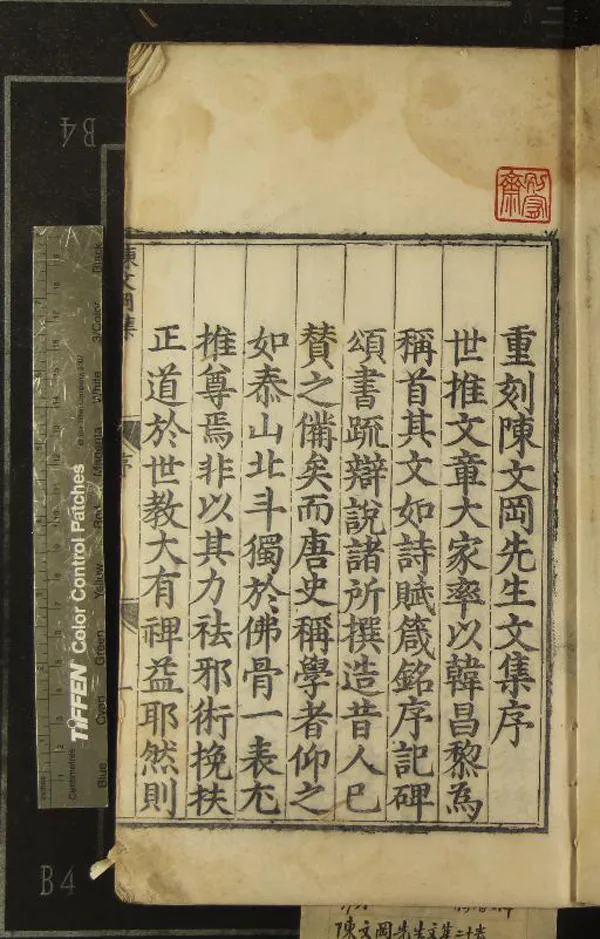 重刻陳文岡先生文集序
世推文章大家率以韓昌黎為
稱首其文如詩賦箴銘序記碑
頌書疏辯說諸所撰造昔人已
贊之備矣而唐史稱學者仰之
如泰山北斗獨於佛骨一表尤
推尊焉非以其力祛邪術挽扶
正道於世教大有裨益耶然則
陳文岡集
序
一
B4
B4
TIFFEN Color Control Patches
Blue
Cyan
Green
Yellow
Red
Magenta
White
3/Color
Black
Centimetres
陳文岡先生文集二十卷